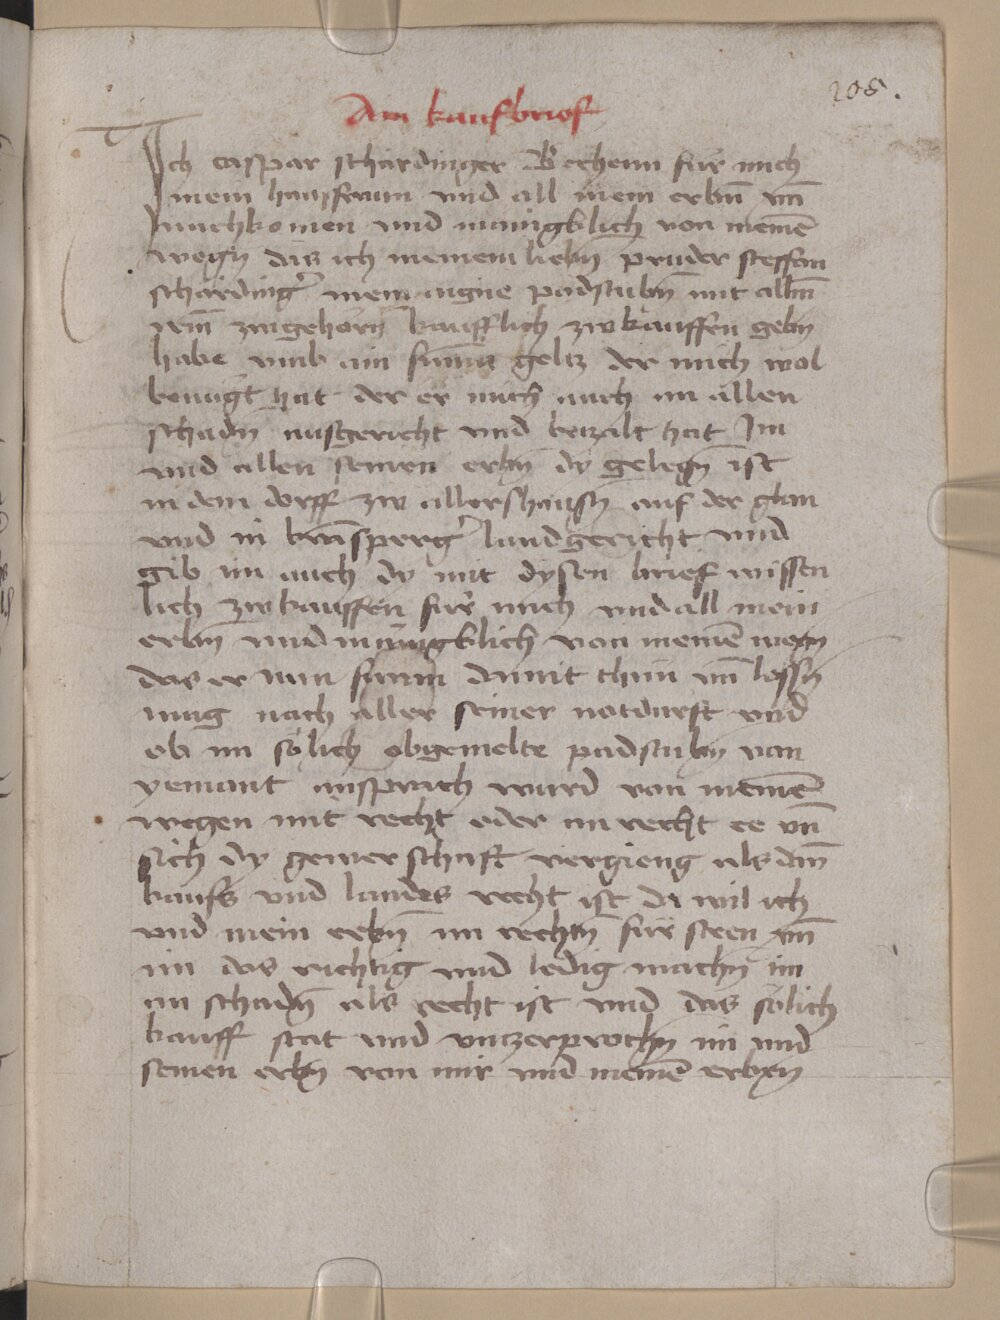 208.
Ain kaufbrief
Ich caspar schärdinger Bechenn für mich
mein hausfraun und all mein erbm̄ vn̄
nachkomen und mänigklich von meinē
wegn̄ das ich meinem liebn̄ pruder steffan
schärdingʼ mein aigne padstubn̄ mit allm̄
irm̄ zwgehörn̄ kaufflich zw kauffen gebn̄
habe vmb ain sum̄a geltz der mich wol
benügt hat der er mich auch an allen
schadn̄ ausgericht und betzalt hat Im
und allen seinen erbn̄ dy gelegn̄ ist
in dem dorff zw allershausn̄ auf der glan
und in kran̄spergʼ landgericht und
gib im auch dy mit dysen brief wissen
lich zw kauffen für mich und all mein
erbn̄ und mänigklich von meinē wegn̄
das er nun furan damit thun vn̄ lassn̄
mag nach aller seiner notdurft und
ob im sölich obgemelte padstubn̄ von
yemant ansprach wurd von meinē
wegen mit recht oder an recht ee vn̄
sich dy gewerschaft vergieng als dan̄
kaufs und landes recht ist da wil ich
und mein erbn̄ im rechtn̄ für steen vn̄
im das richtig und ledig machn̄ im
an schadn̄ als recht ist und das sölich
kauff stät und vnzerprochn̄ im und
seinen erbn̄ von mir und meinē erbn̄